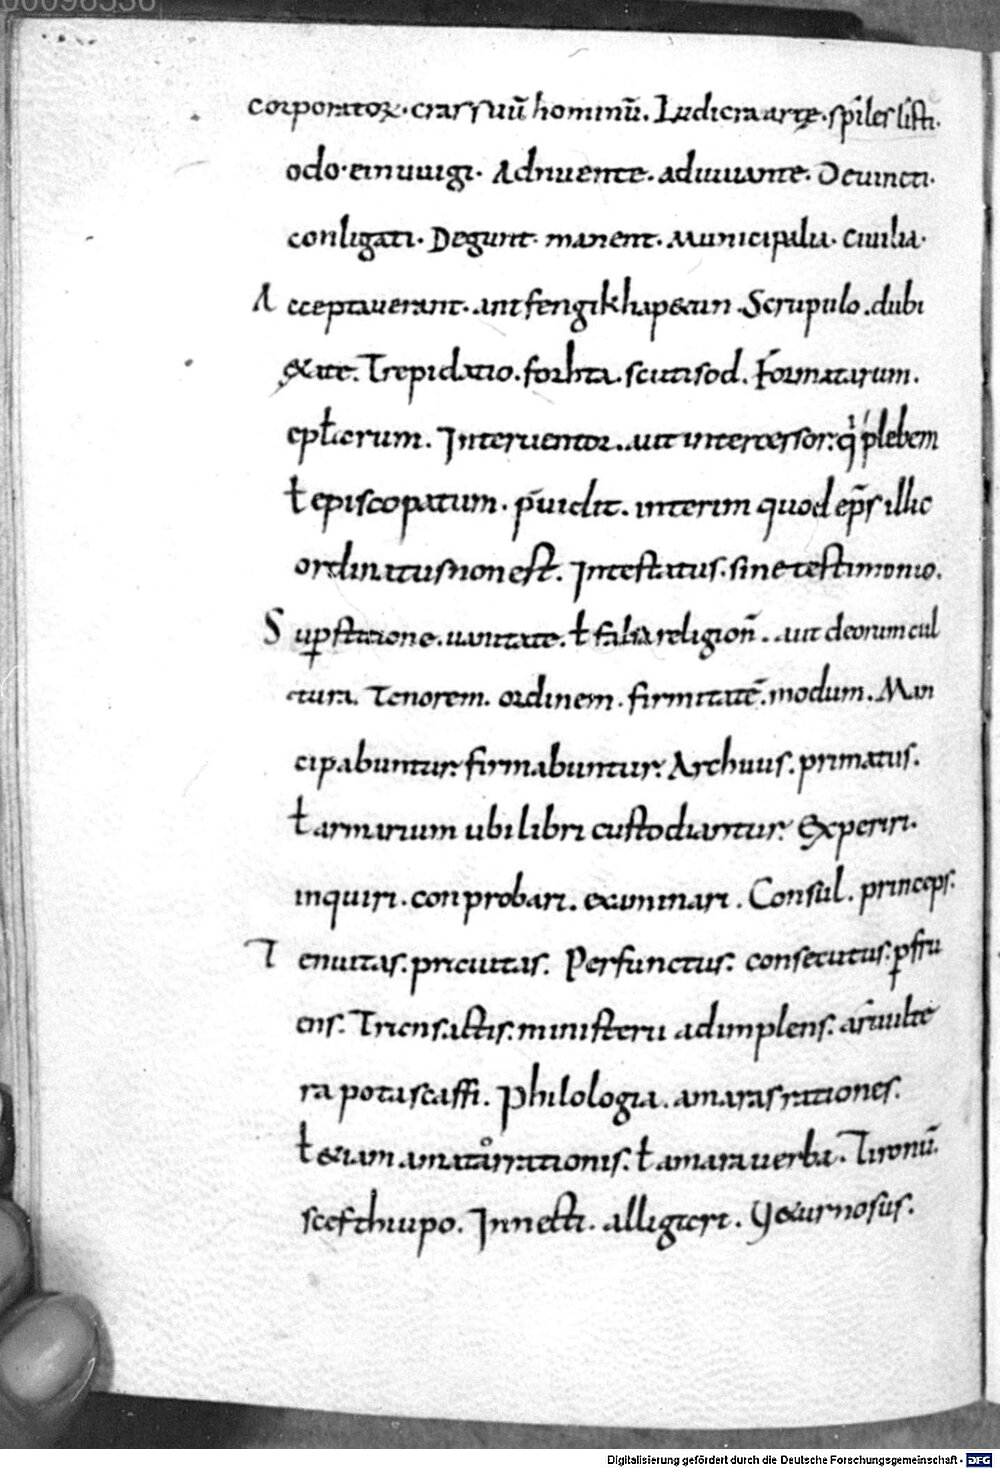 00096536
corporatorꝝ. crassuū hominū. Ludicra arte. spiles listi.
odo. einuuigi. Adnitente. adiuuante. Deuincti.
conligati. Degunt. manent. Municipalia. ciuilia.
Acceptauerant. antfengikhapetun. Scrupulo. dubi
etate. Trepidatio. forhta. scutisod. Formatarum.
eplarum. Interuentor. aut intercessor: qui plebem
ƚ episcopatum. puidit. interim quod eps illic
ordinatus non est. Intestatus. sine testimonio.
Supstitione. uanitate. ƚ falsa religion̄. aut deorum cul
tura. Tenorem. ordinem. firmitatē. modum. Man
cipabuntur. firmabuntur. Archiuus. primatus.
ƚ armarium ubi libri custodiantur. Experiri.
inquiri. conprobari. examinari. Consul. princeps.
Tenuitas. prauitas. Perfunctus. consecutus. pfru
ens. Transactis. ministerii adimplens.
ra potascaffi. Philologia. amaras rationes.
ƚ etiam amator rationis. ƚ amara uerba. Tironū.
scefthiupo. Innecti. alligari.